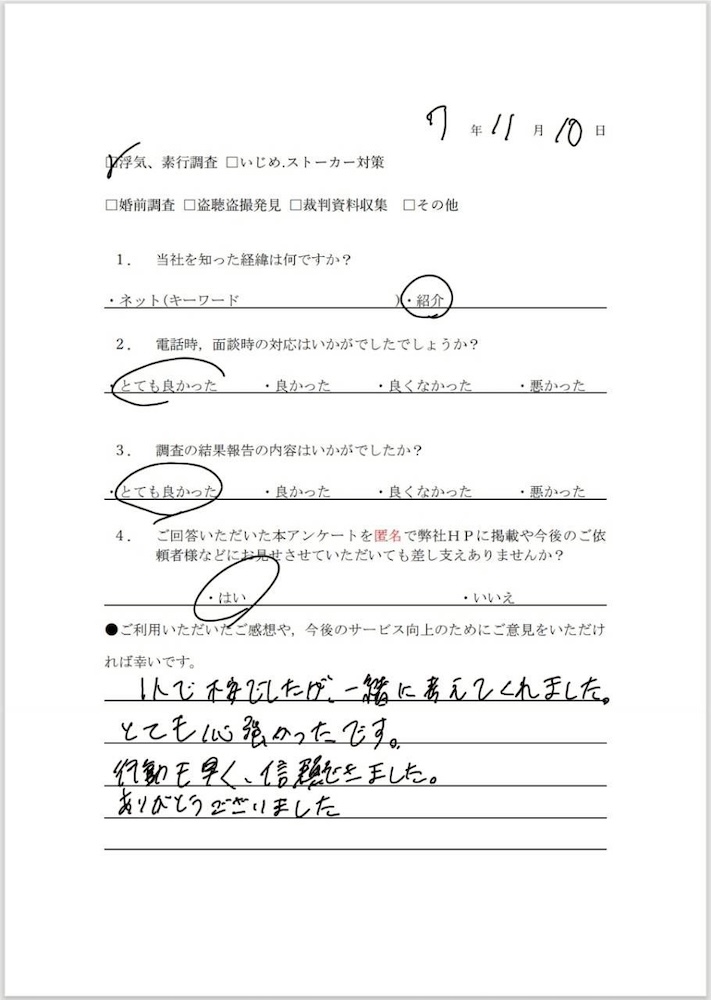 7 年 11 月 10 日
☑浮気、素行調査 □いじめ.ストーカー対策
□婚前調査 □盗聴盗撮発見 □裁判資料収集 □その他
１． 当社を知った経緯は何ですか？
・ネット(キーワード )・紹介
２． 電話時，面談時の対応はいかがでしたでしょうか？
・とても良かった ・良かった ・良くなかった ・悪かった
３． 調査の結果報告の内容はいかがでしたか？
・とても良かった ・良かった ・良くなかった ・悪かった
４． ご回答いただいた本アンケートを匿名で弊社ＨＰに掲載や今後のご依
頼者様などにお見せさせていただいても差し支えありませんか？
・はい ・いいえ
●ご利用いただいたご感想や，今後のサービス向上のためにご意見をいただけ
れば幸いです。
1人で不安でしたが、一緒に考えてくれました。
とても心強かったです。
行動も早く、信頼できました。
ありがとうございました